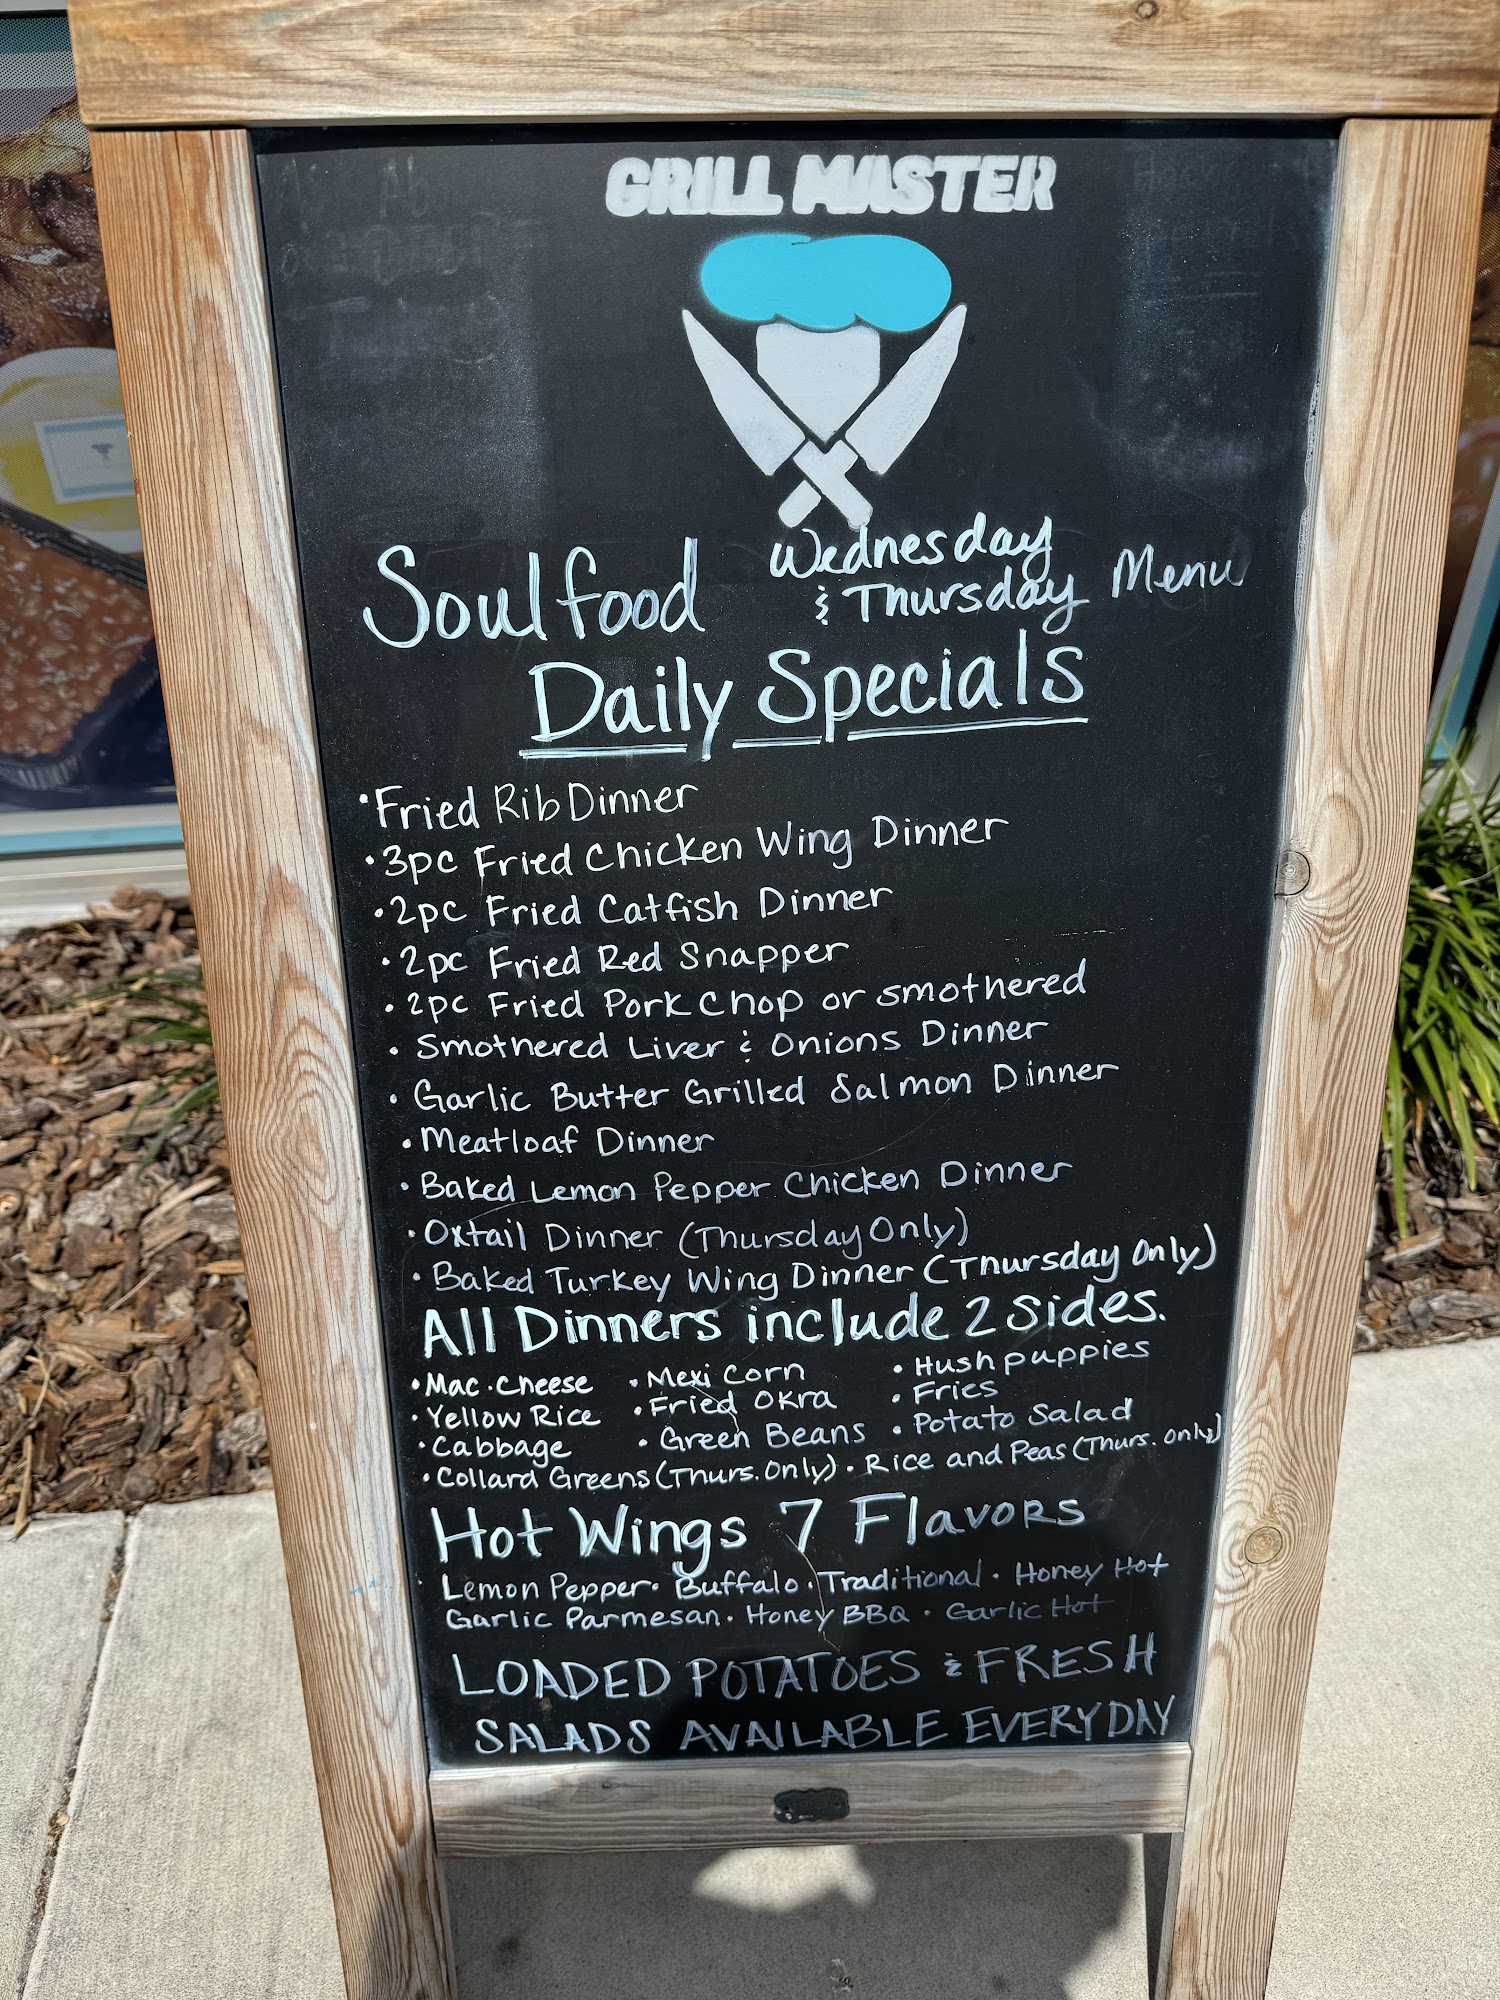 GRILL MASTER
Soulfood Wednesday & Thursday Menu
Daily Specials
• Fried Rib Dinner
• 3pc Fried Chicken Wing Dinner
• 2pc Fried Catfish Dinner
• 2pc Fried Red Snapper
• 2pc Fried Pork Chop or smothered
• Smothered Liver & Onions Dinner
• Garlic Butter Grilled Salmon Dinner
• Meatloaf Dinner
• Baked Lemon Pepper Chicken Dinner
• Oxtail Dinner (Thursday Only)
• Baked Turkey Wing Dinner (Thursday Only)
All Dinners include 2 sides.
• Mac. Cheese • Mexi Corn • Hushpuppies
• Yellow Rice • Fried Okra • Fries
• Cabbage • Green Beans • Potato Salad
• Collard Greens (Thurs. Only) • Rice and Peas (Thurs. only)
Hot Wings 7 Flavors
Lemon Pepper • Buffalo • Traditional • Honey Hot
Garlic Parmesan • Honey BBQ • Garlic Hot
LOADED POTATOES & FRESH
SALADS AVAILABLE EVERYDAY